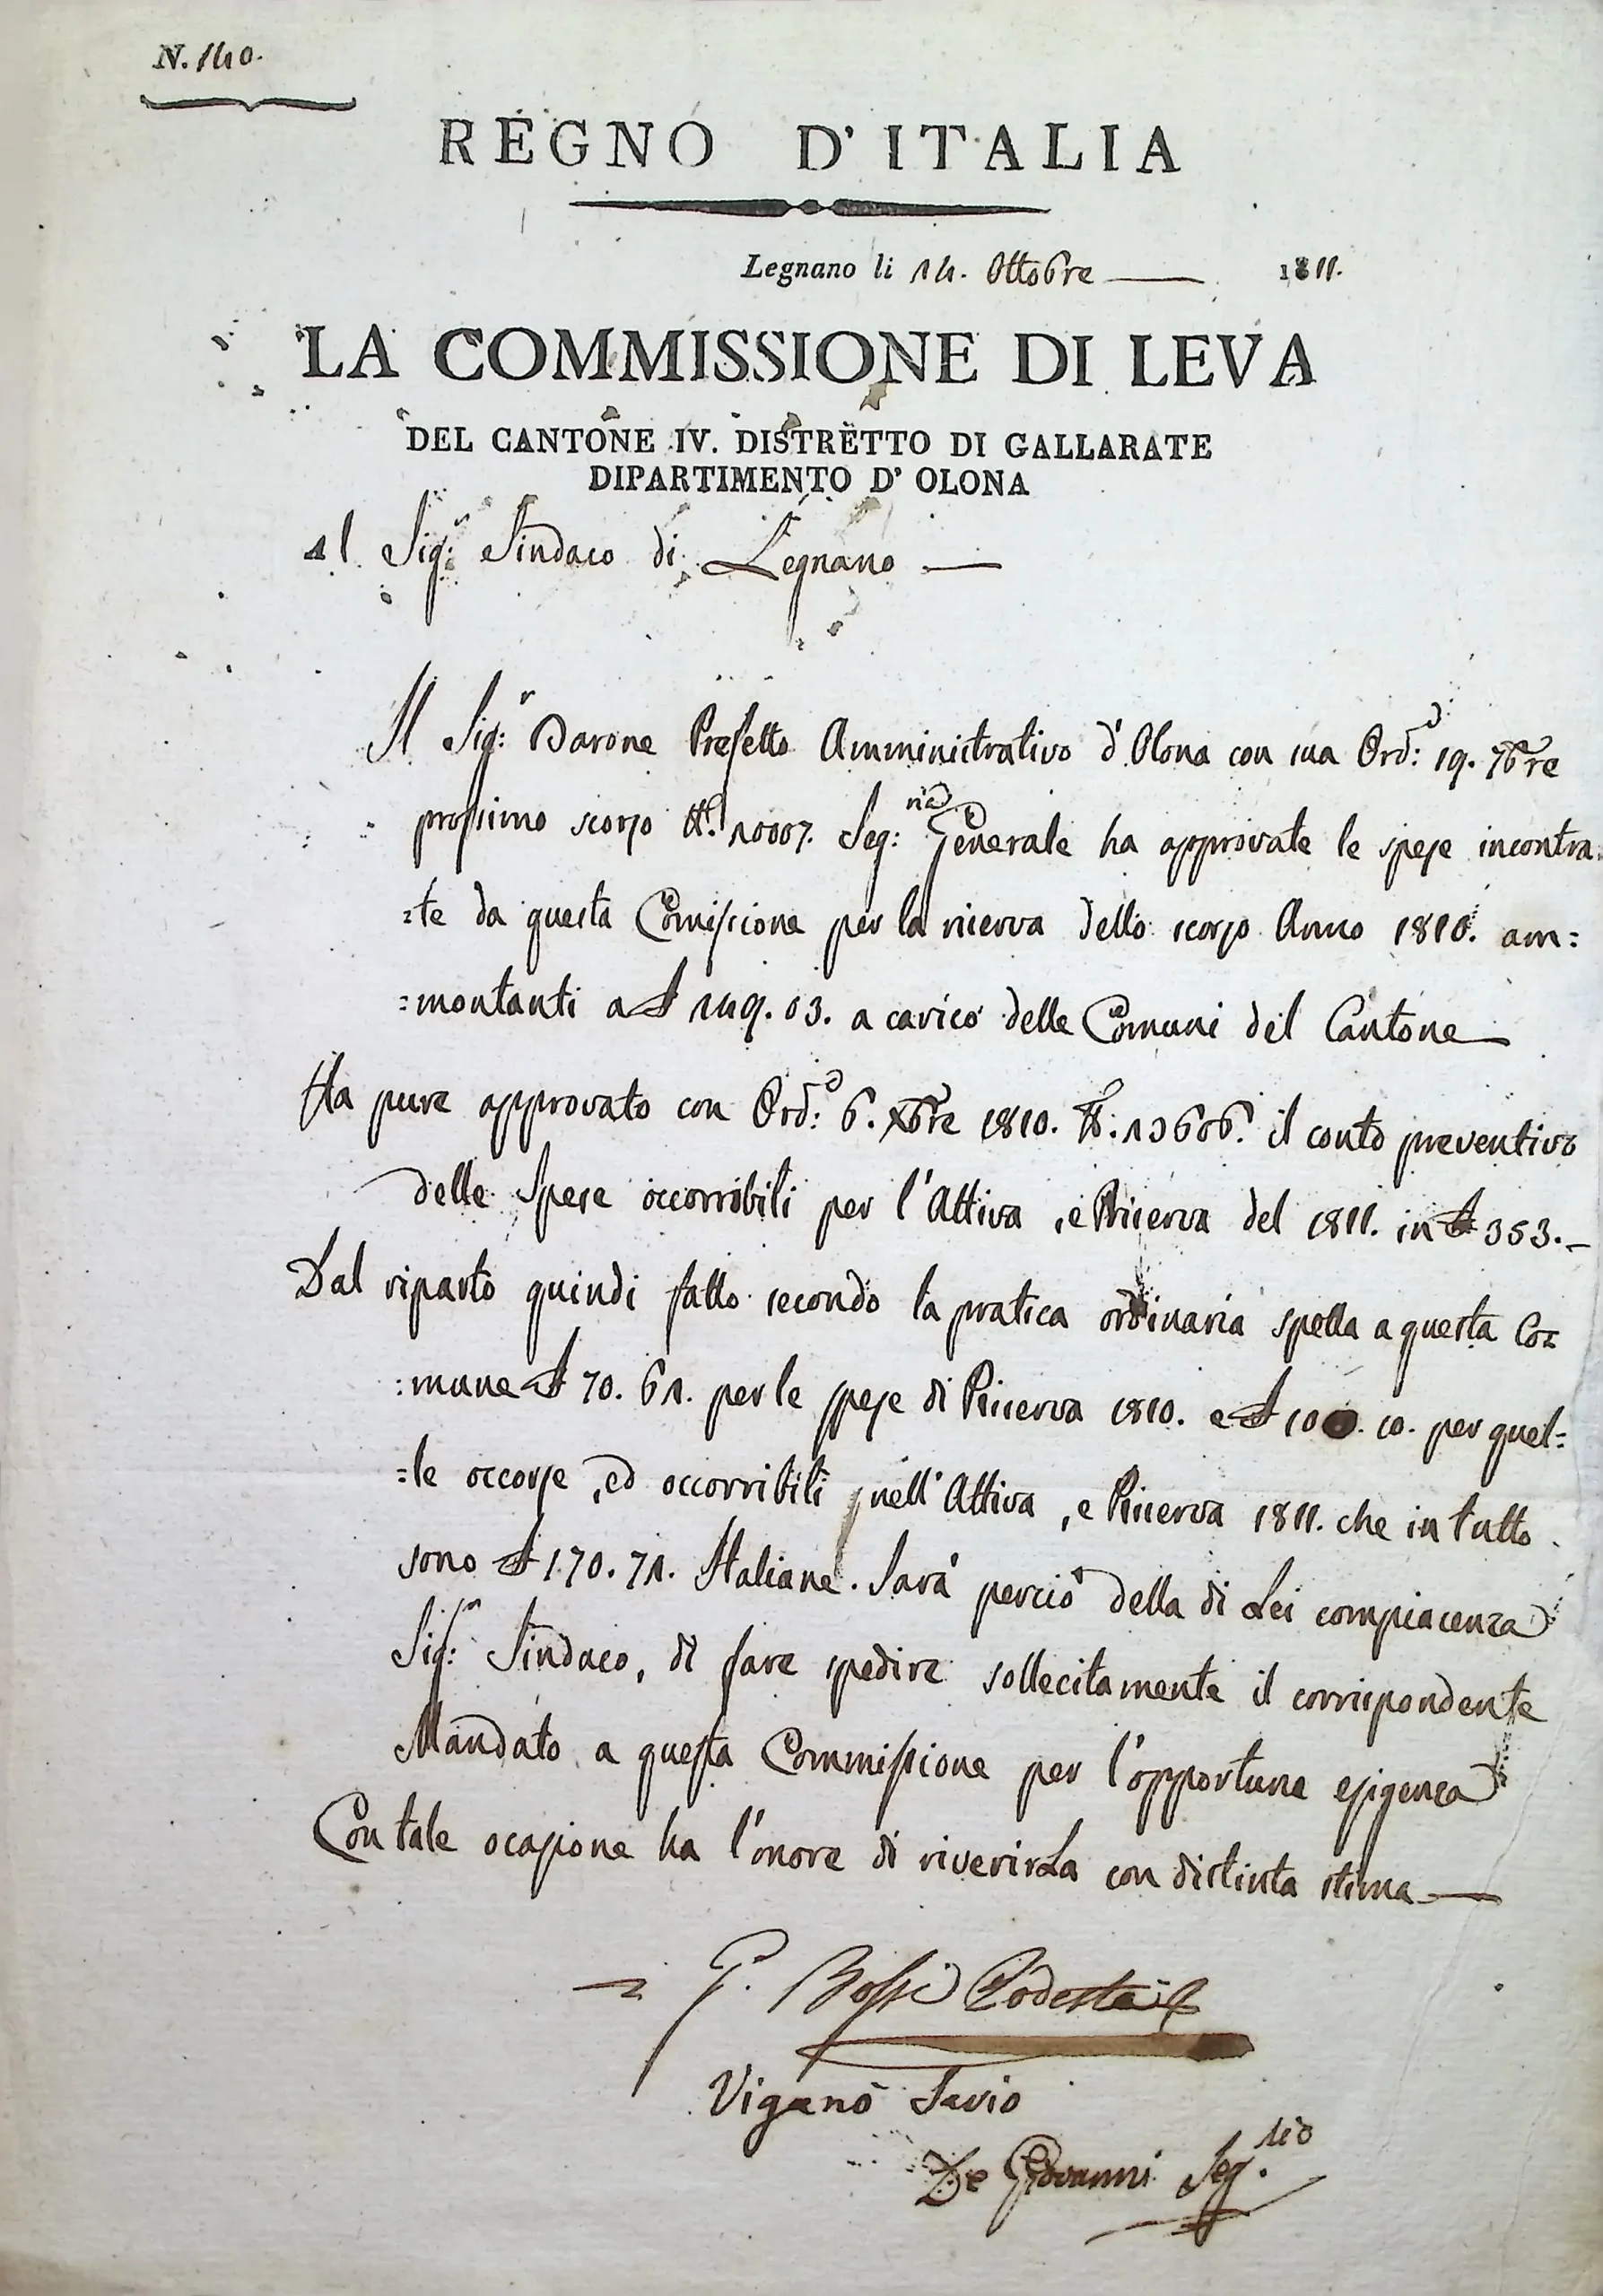 N. 140.
REGNO D'ITALIA
Legnano li 14. Ottobre 1811.
LA COMMISSIONE DI LEVA
DEL CANTONE IV. DISTRETTO DI GALLARATE
DIPARTIMENTO D' OLONA
Al Sig.r Sindaco di Legnano
Il Sig.r Barone Prefetto Amministrativo d'Olona con sua Ord.e 19. 7bre
prossimo scorso N.° 10007. Seg.ria Generale ha approvate le spese incontra
=te da questa Comissione per la riserva dello scorso Anno 1810. am=
=montanti a £ 149. 03. a carico delle Comuni del Cantone
Ha pure approvato con Ord.e 6. Xbre 1810. N.° 13606. il conto preventivo
delle Spese occorribili per l'Attiva, e Riserva del 1811. in £ 353.
Dal riparto quindi fatto secondo la pratica ordinaria spetta a questa Co=
=mune £ 70. 61. per le spese di Riserva 1810. e £ 100. 10. per quel=
=le occorse, ed occorribili nell'Attiva, e Riserva 1811. che in tutto
sono £ 170. 71. Italiane. Sarà perciò della di Lei compiacenza
Sig.r Sindaco, di fare spedire sollecitamente il corrispondente
Mandato a questa Commissione per l'opportuna esigenza
Con tale ocasione ha l'onore di riverirLa con distinta stima
G. Bossi Podestà
Viganò Savio
De Giovanni Seg.rio